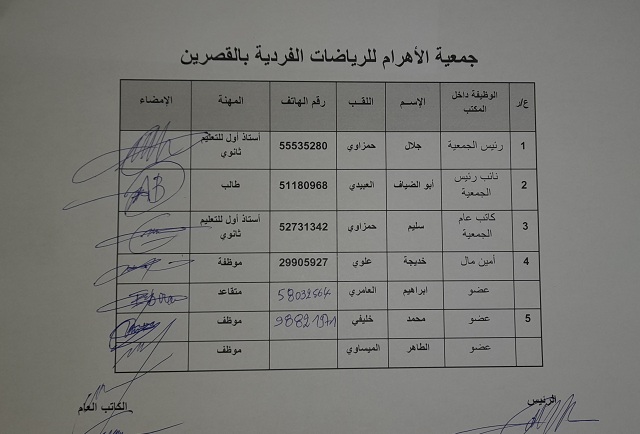 جمعية الأهرام للرياضات الفردية بالقصرين
ع/ر الوظيفة داخل المكتب الإسـم اللقـب رقم الهاتف المهنة الإمضاء
1 رئيس الجمعية جلال حمزاوي 55535280 أستاذ أول للتعليم ثانوي
2 نائب رئيس الجمعية أبو الضياف العبيدي 51180968 طالب AB
3 كاتب عام الجمعية سليم حمزاوي 52731342 أستاذ أول للتعليم ثانوي
4 أمين مال خديجة علوي 29905927 موظفة
عضو ابراهيم العامري 58032564 متقاعد
5 عضو محمد خليفي 98821971 موظف
عضو الطاهر الميساوي موظف
الرئيس
الكاتب العام